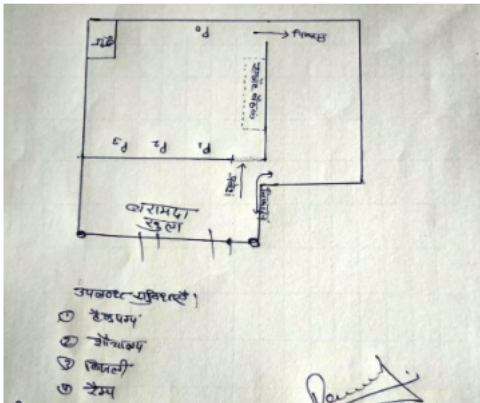 P0
निकास
P3
P2
P1
प्रवेश
निकास
बरामदा
खुला
उपलब्ध सुविधाएँ।
① हैंडपम्प
② शौचालय
③ बिजली
④ रैम्प